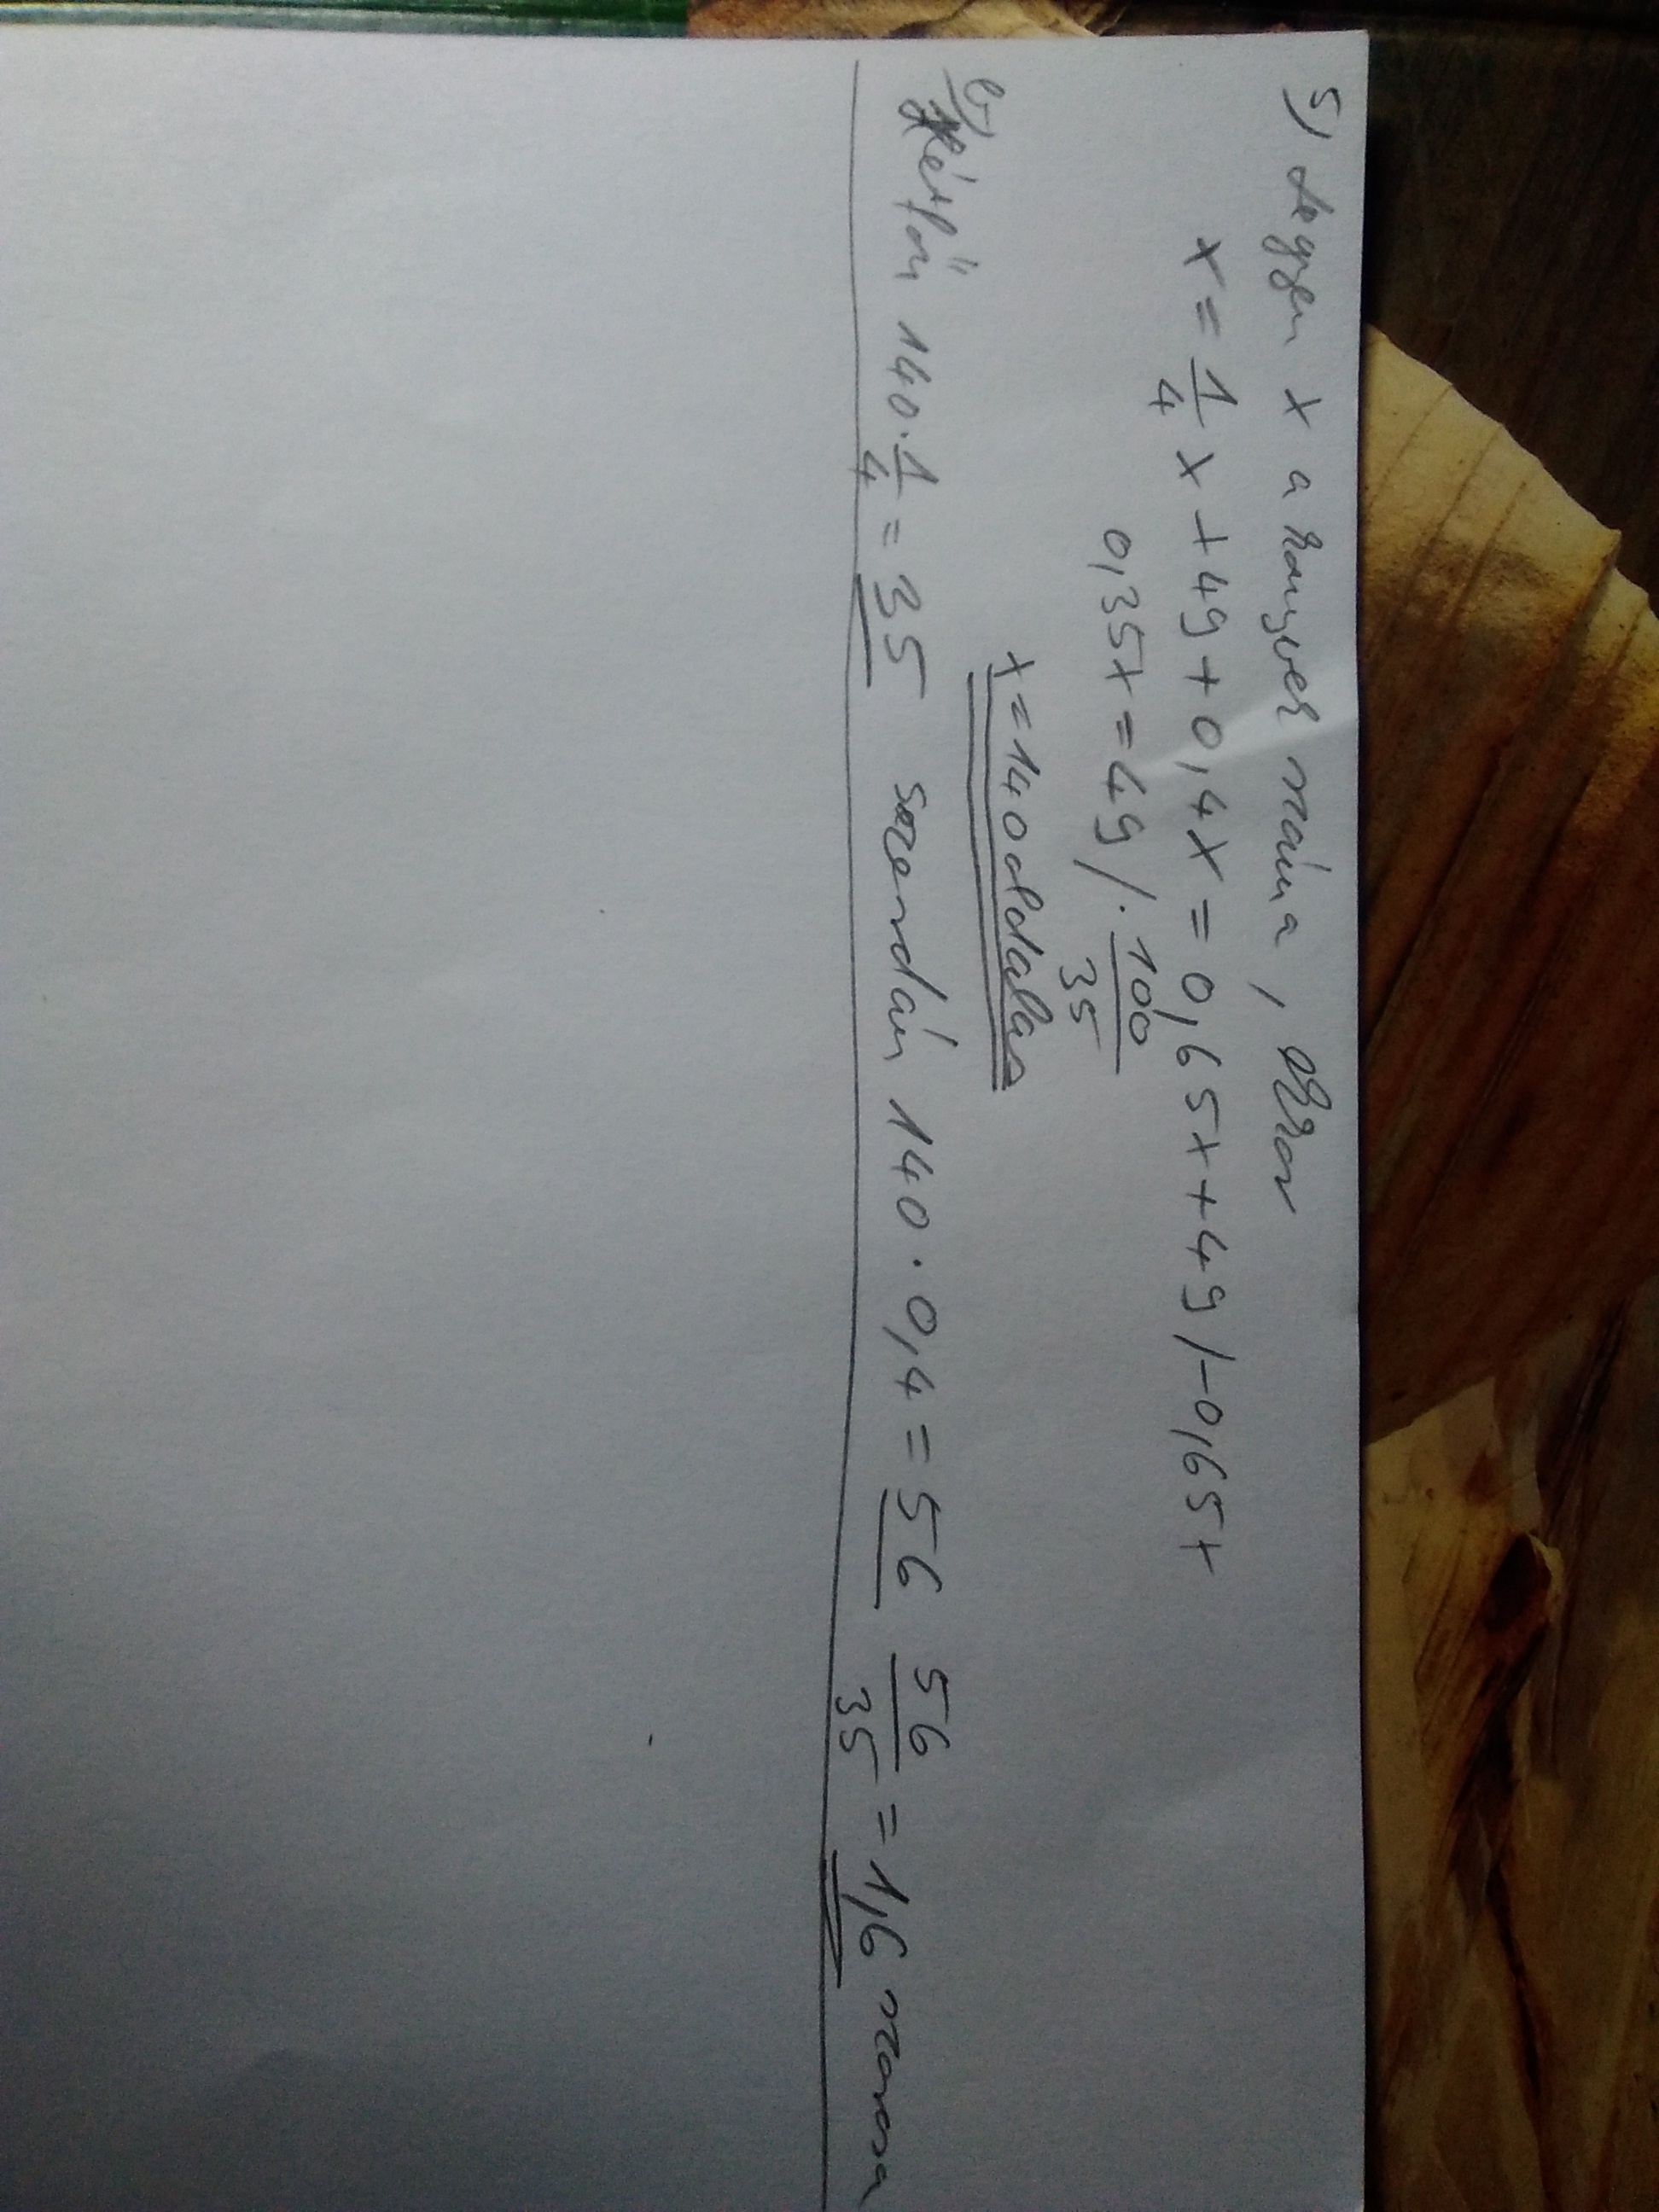 5) Legyen x a könyvek száma, ekkor
x = 1/4 x + 49 + 0,4x = 0,65x + 49 /-0,65x
0,35x = 49 /· 100/35
x = 140 oldalas
b) Hétfőn 140 · 1/4 = 35 szerdán 140 · 0,4 = 56 56/35 = 1,6 szorosa